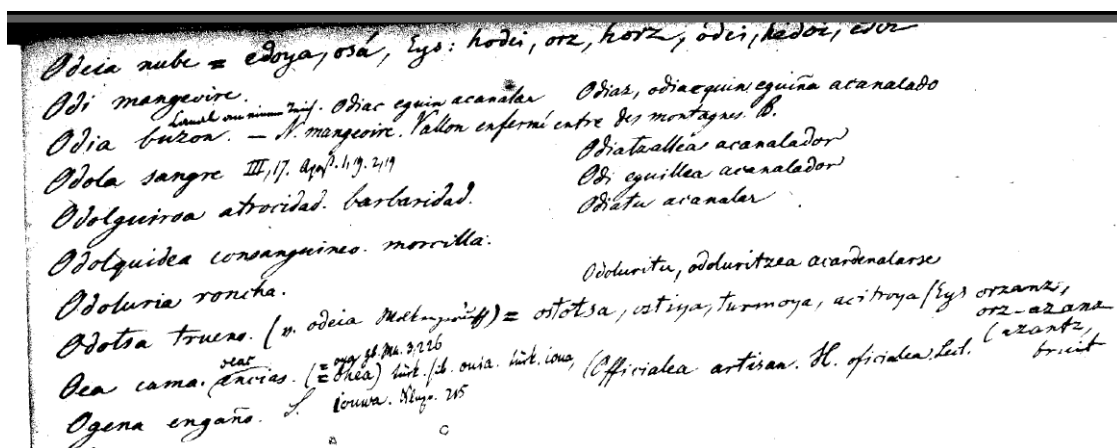 Odeia nube = edoya, osá, Eys: hodei, orz, horz, odei, hedoi, edoi
Odi mangeoire. Odiac eguin acanalar Odiaz, odiacquin eguiña acanalado
Odia buzon. – N. mangeoire. Vallon enfermé entre des montagnes. B.
Odiatzallea acanalador
Odola sangre III, 17. Apoc. 1,19. 2,19
Odi eguillea acanalador
Odolguiroa atrocidad. barbaridad.
Odiatu acanalar
Odolquidea consanguineo. morcilla.
Odoluria roncha.
Odoluritu, odoluritzea acardenalarse
Odotsa trueno. (v. odeia) = ostotsa, ostiya, turmoya, acitroya (Eys orzanz,
orz-azanz
(azantz,
bruit
Oea cama. encias. (= Ohea) türk. ouia. türk. ioua, (Officialea artisan. H. oficialea Lect.
Ogena engaño. S. iouwa. 215